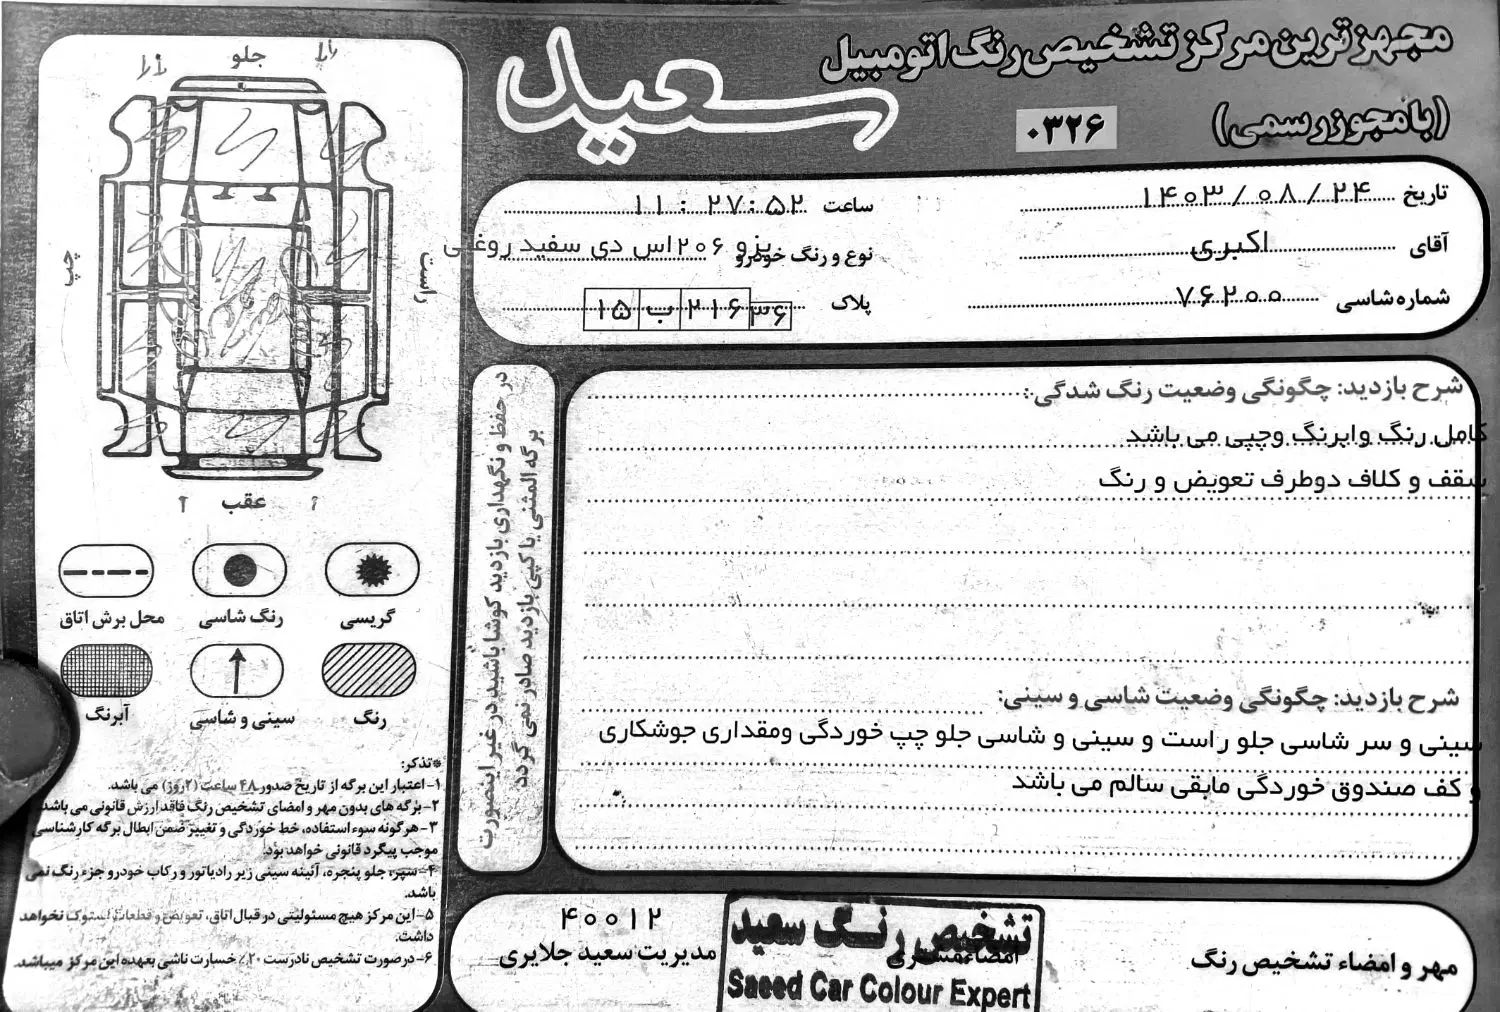 مجهزترین مرکز تشخیص رنگ اتومبیل
سعید
(با مجوز رسمی)
۰۳۲۶
تاریخ ۱۴۰۳/۰۸/۲۴
ساعت ۱۱:۲۷:۵۲
آقای اکبری
نوع و رنگ خودرو پژو ۲۰۶ اس دی سفید روغنی
شماره شاسی ۷۶۲۰۰
پلاک ۱۵ ب ۲۱۶ ۳۶
شرح بازدید: چگونگی وضعیت رنگ شدگی:
کامل رنگ وابرنگ وچپی می باشد
سقف و کلاف دوطرف تعویض و رنگ
شرح بازدید: چگونگی وضعیت شاسی و سینی:
سینی و سر شاسی جلو راست و سینی و شاسی جلو چپ خوردگی ومقداری جوشکاری
و کف صندوق خوردگی مابقی سالم می باشد
در حفظ و نگهداری بازدید کوشا باشید در غیر اینصورت
برگه المثنی یا کپی بازدید صادر نمی گردد
جلو
چپ
راست
عقب
گریسی
رنگ شاسی
محل برش اتاق
رنگ
سینی و شاسی
آبرنگ
*تذکر:
۱-اعتبار این برگه از تاریخ صدور ۴۸ ساعت (۲روز) می باشد.
۲-برگه های بدون مهر و امضای تشخیص رنگ فاقد ارزش قانونی می باشد.
۳-هرگونه سوء استفاده، خط خوردگی و تغییر ضمن ابطال برگه کارشناسی
موجب پیگرد قانونی خواهد بود.
۴-سپر، جلو پنجره، آئینه سینی زیر رادیاتور و رکاب خودرو جزء رنگ نمی
باشد.
۵-این مرکز هیچ مسئولیتی در قبال اتاق، تعویض و قطعات استوک نخواهد
داشت.
۶-درصورت تشخیص نادرست ۲۰٪ خسارت ناشی بعهده این مرکز میباشد.
مهر و امضاء تشخیص رنگ
امضاء مشتری
تشخیص رنگ سعید
Saeed Car Colour Expert
۴۰۰۱۲
مدیریت سعید جلایری